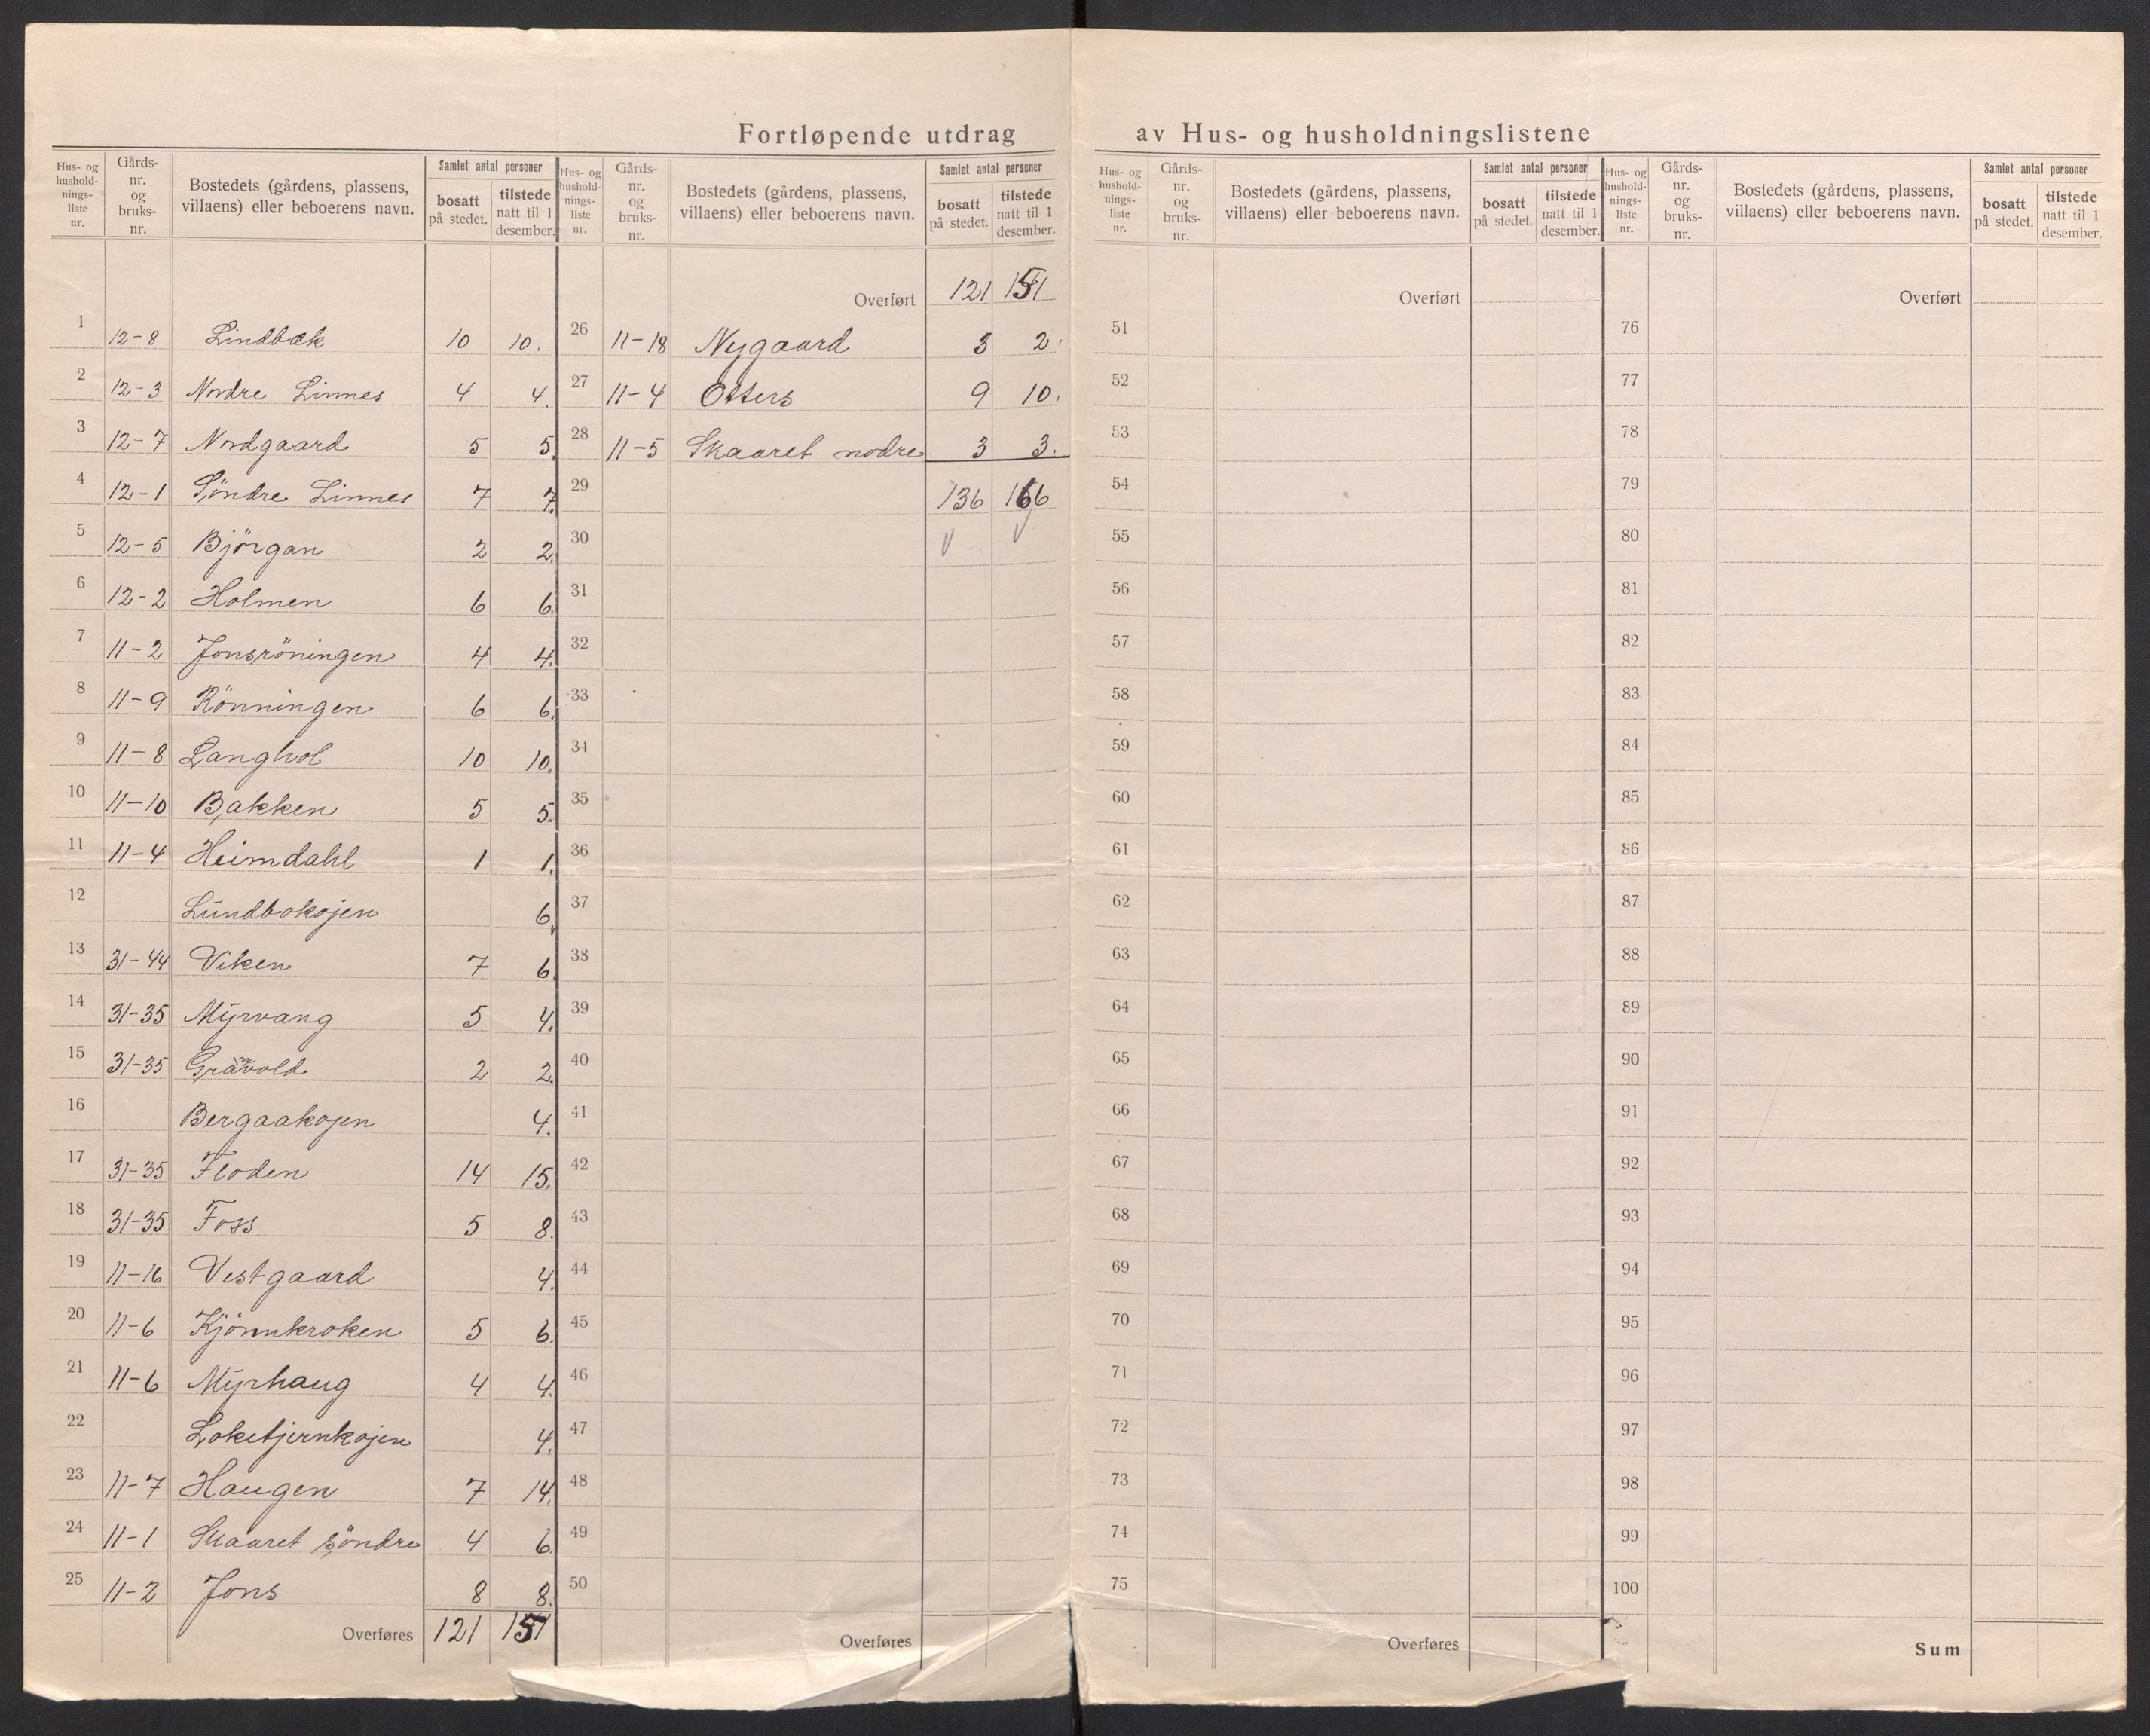 Fortløpende utdrag av Hus- og husholdningslistene
Hus- og hushold- nings- liste nr. | Gårds- nr. og bruks- nr. | Bostedets (gårdens, plassens, villaens) eller beboerens navn. | Samlet antal personer | bosatt på stedet. | tilstede natt til 1 desember.
1 12-8 Lindbæk 10 10.
2 12-3 Nordre Linnes 4 4.
3 12-7 Nordgaard 5 5.
4 12-1 Söndre Linnes 7 7.
5 12-5 Björgan 2 2.
6 12-2 Holmen 6 6.
7 11-2 Jonsröningen 4 4.
8 11-9 Rönningen 6 6.
9 11-8 Langhol 10 10.
10 11-10 Bakken 5 5.
11 11-4 Heimdahl 1 1.
12 Lundbokojen 6
13 31-44 Viken 7 6.
14 31-35 Myrvang 5 4.
15 31-35 2 2.
16 Bergaakojen 4.
17 31-35 Floden 14 15.
18 31-35 Foss 5 8.
19 11-16 Vestgaard 4.
20 11-6 Kjönnkroken 5 6.
21 11-6 Myrhaug 4 4.
22 Loketjernkojen 4.
23 11-7 Haugen 7 14.
24 11-1 Skaaret söndre 4 6.
25 11-2 Jons 8 8.
Overføres 121 151
Hus- og hushold- nings- liste nr. | Gårds- nr. og bruks- nr. | Bostedets (gårdens, plassens, villaens) eller beboerens navn. | Samlet antal personer | bosatt på stedet. | tilstede natt til 1 desember.
Overført 121 151
26 11-18 Nygaard 3 2.
27 11-4 Otters 9 10.
28 11-5 Skaaret nodre 3 3.
29 136 166
30
31
32
33
34
35
36
37
38
39
40
41
42
43
44
45
46
47
48
49
50
Overføres
Hus- og hushold- nings- liste nr. | Gårds- nr. og bruks- nr. | Bostedets (gårdens, plassens, villaens) eller beboerens navn. | Samlet antal personer | bosatt på stedet. | tilstede natt til 1 desember.
Overført
51
52
53
54
55
56
57
58
59
60
61
62
63
64
65
66
67
68
69
70
71
72
73
74
75
Overføres
Hus- og hushold- nings- liste nr. | Gårds- nr. og bruks- nr. | Bostedets (gårdens, plassens, villaens) eller beboerens navn. | Samlet antal personer | bosatt på stedet. | tilstede natt til 1 desember.
Overført
76
77
78
79
80
81
82
83
84
85
86
87
88
89
90
91
92
93
94
95
96
97
98
99
100
Sum